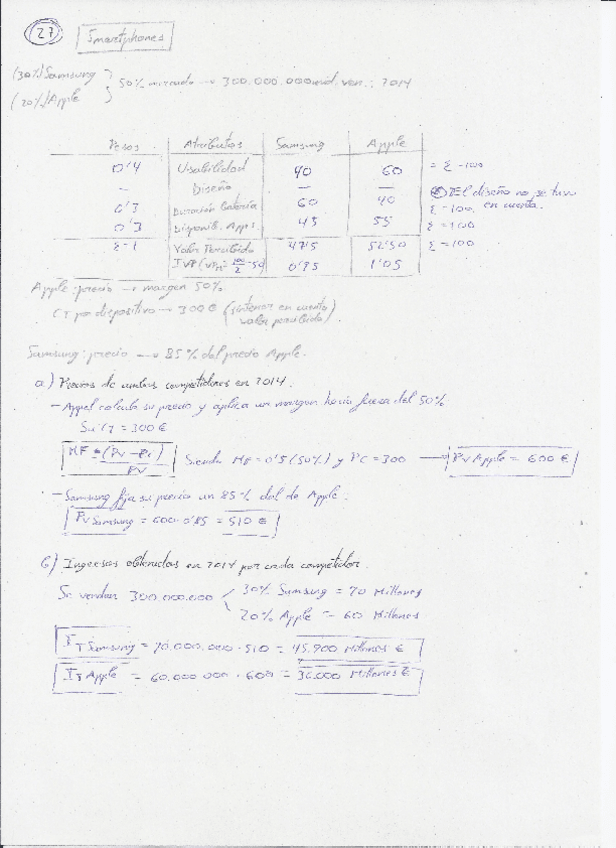 27 Smartphones
(30%) Samsung
50% mercado → 300.000.000 unid. ven.: 2014
(20%) Apple
Pesos Atributos Samsung Apple
0'4 Usabilidad 40 60 = Σ = 100
— Diseño — — El diseño no se tuvo en cuenta.
0'3 Duración Batería 60 40 Σ = 100
0'3 Disponib. Apps 45 55 Σ = 100
Σ = 1 Valor Percibido 47'5 52'50 Σ = 100
IVP (VPm = 100/2 = 50) 0'95 1'05
Apple: precio → margen 50%.
CT por dispositivo → 300 € (sin tener en cuenta valor percibido).
Samsung: precio → 85% del precio Apple.
a) Precios de ambos competidores en 2014.
- Appel calcula su precio y aplica un margen hacia fuera del 50%:
Su CT = 300 €
MF = (Pv - Pc) / Pv Siendo MF = 0'5 (50%) y Pc = 300 → Pv Apple = 600 €
- Samsung fija su precio un 85% del de Apple:
Pv Samsung = 600 · 0'85 = 510 €
b) Ingresos obtenidos en 2014 por cada competidor.
Se venden 300.000.000 30% Samsung = 90 Millones
20% Apple = 60 Millones
IT Samsung = 90.000.000 · 510 = 45.900 Millones €
IT Apple = 60.000.000 · 600 = 36.000 Millones €